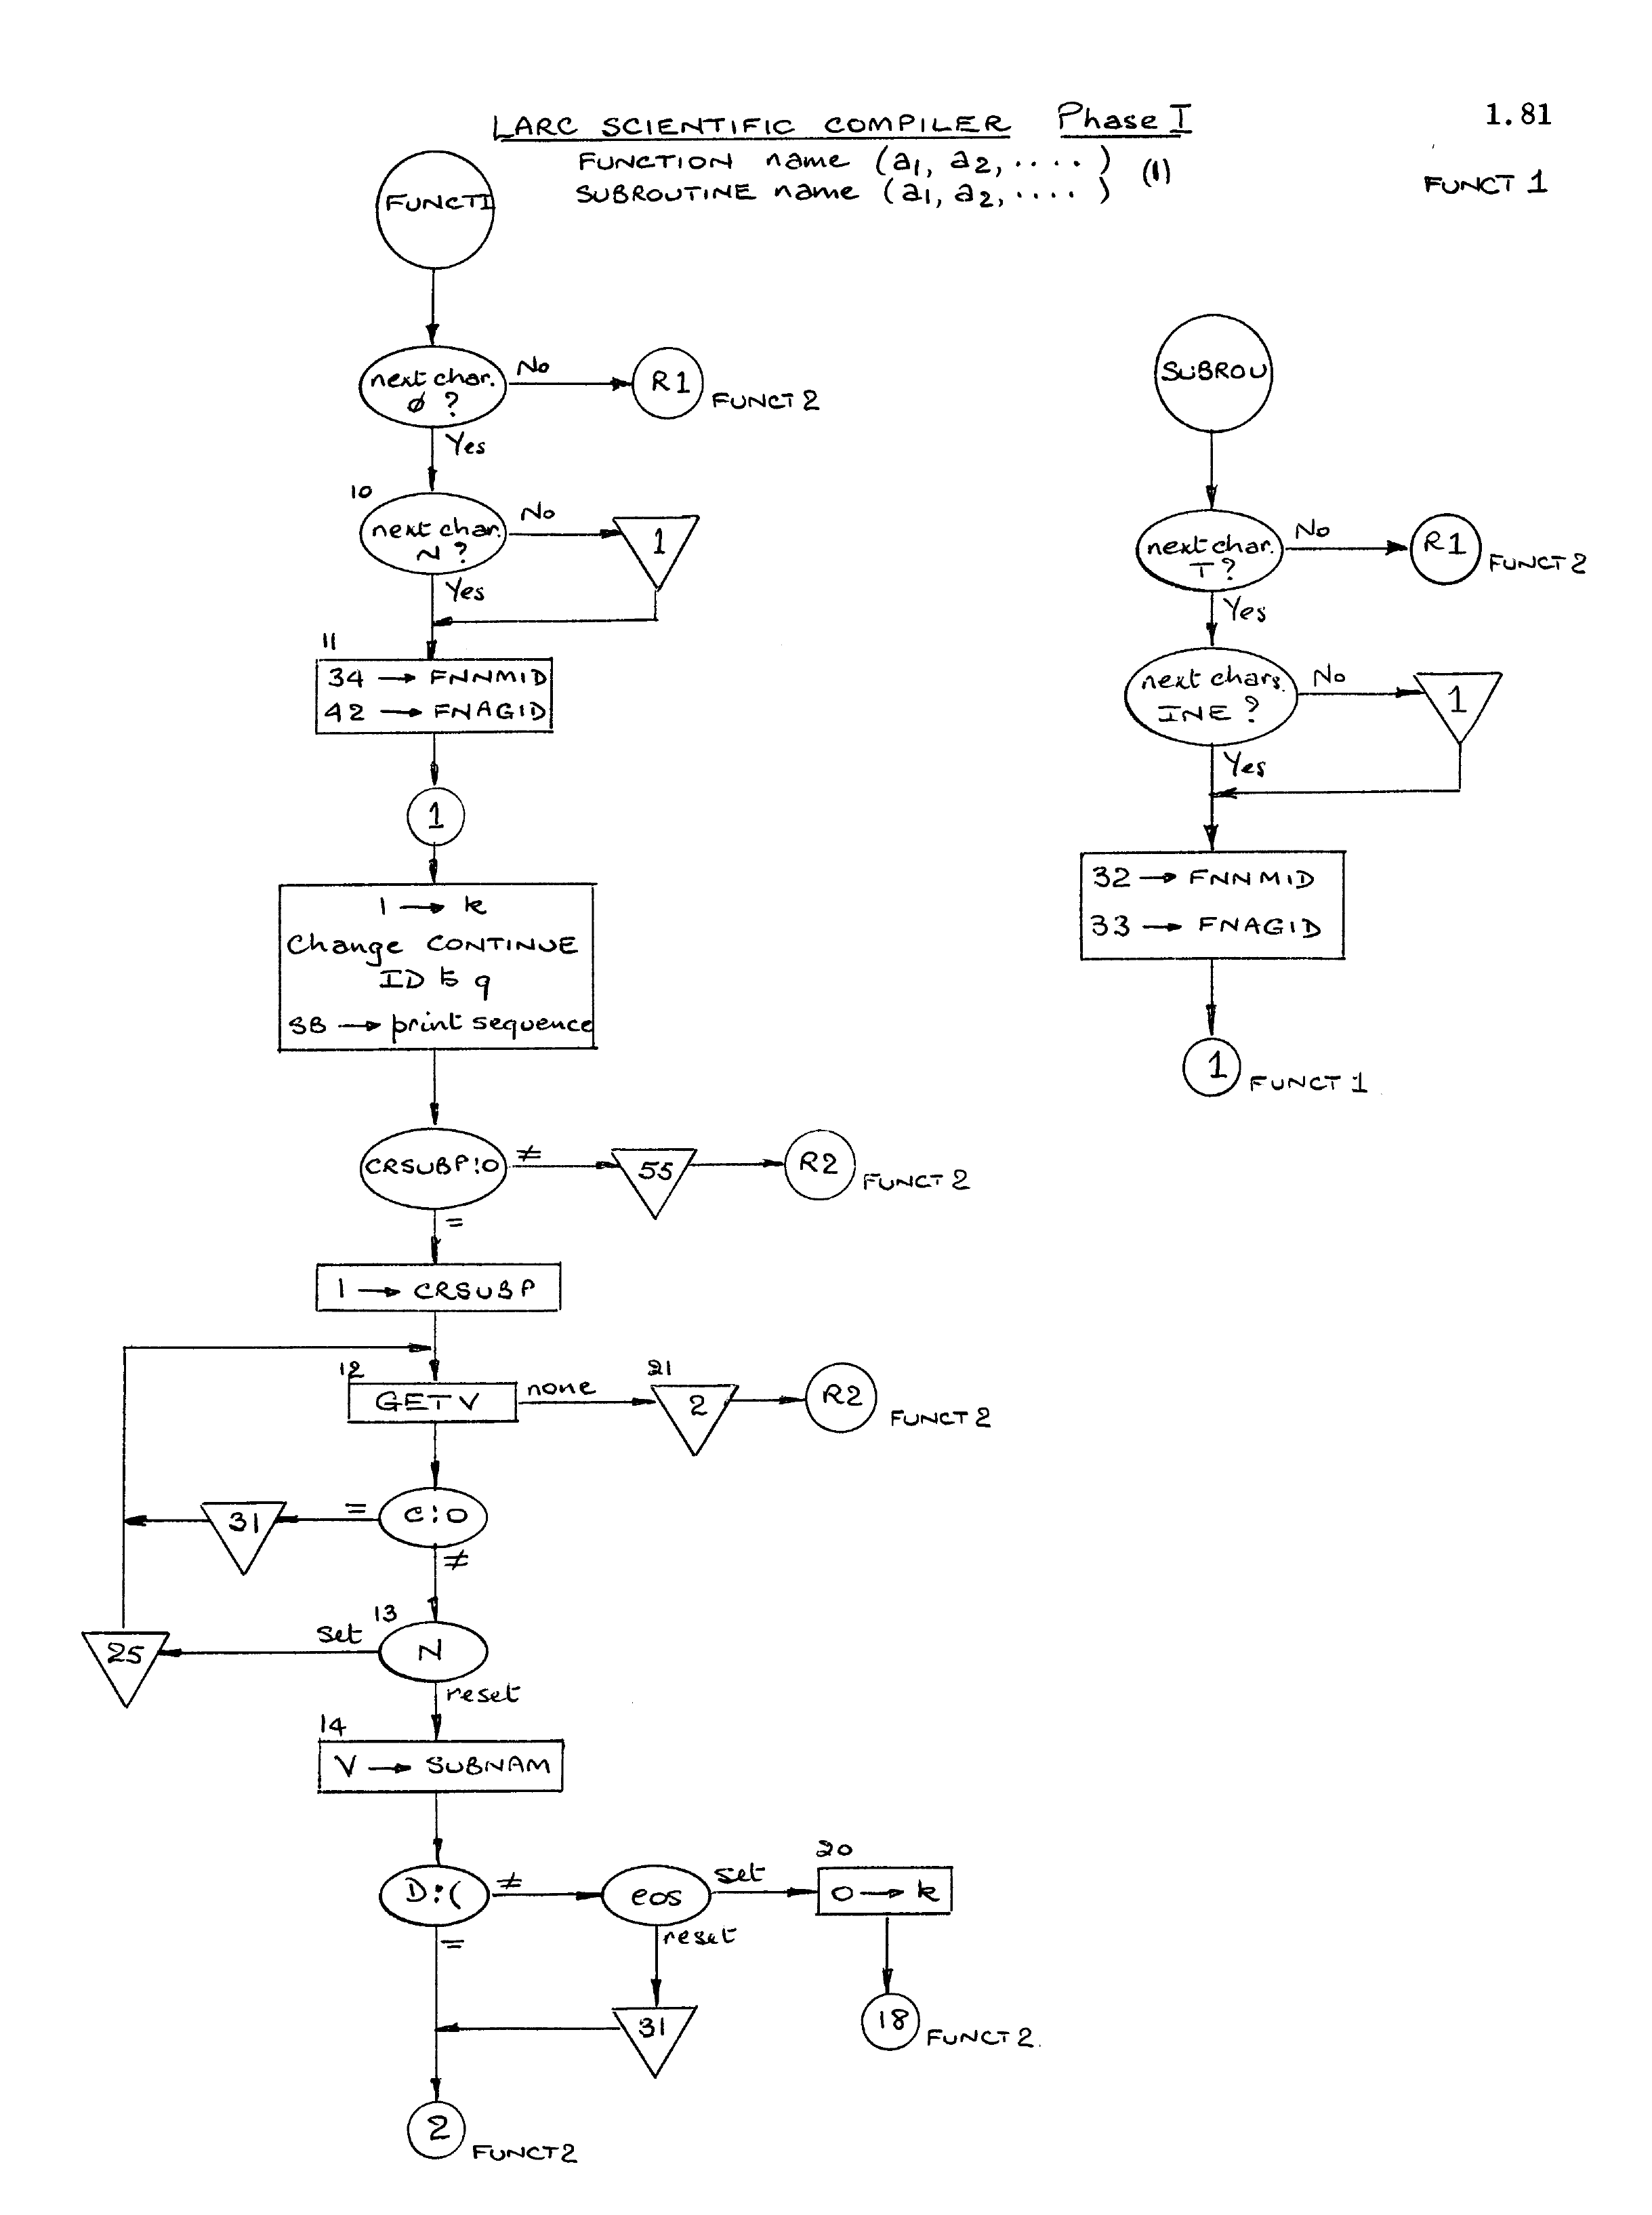 LARC SCIENTIFIC COMPILER Phase I
1.81
FUNCTION name (a1, a2, ....)
SUBROUTINE name (a1, a2, ....)
(1)
FUNCT 1
FUNCTI
next char.
ø ?
No
R1
FUNCT 2
Yes
10
next char.
N ?
No
1
Yes
11
34 → FNNMID
42 → FNAGID
1
1 → k
Change CONTINUE
ID to 9
SB → print sequence
CRSUBP:0
≠
55
R2
FUNCT 2
=
1 → CRSUBP
12
GETV
none
21
2
R2
FUNCT 2
C:0
=
31
≠
13
N
set
25
reset
14
V → SUBNAM
D:(
≠
eos
set
20
0 → k
18
FUNCT 2.
reset
31
=
2
FUNCT 2
SUBROU
next char.
T ?
No
R1
FUNCT 2
Yes
next chars.
INE ?
No
1
Yes
32 → FNNMID
33 → FNAGID
1
FUNCT 1